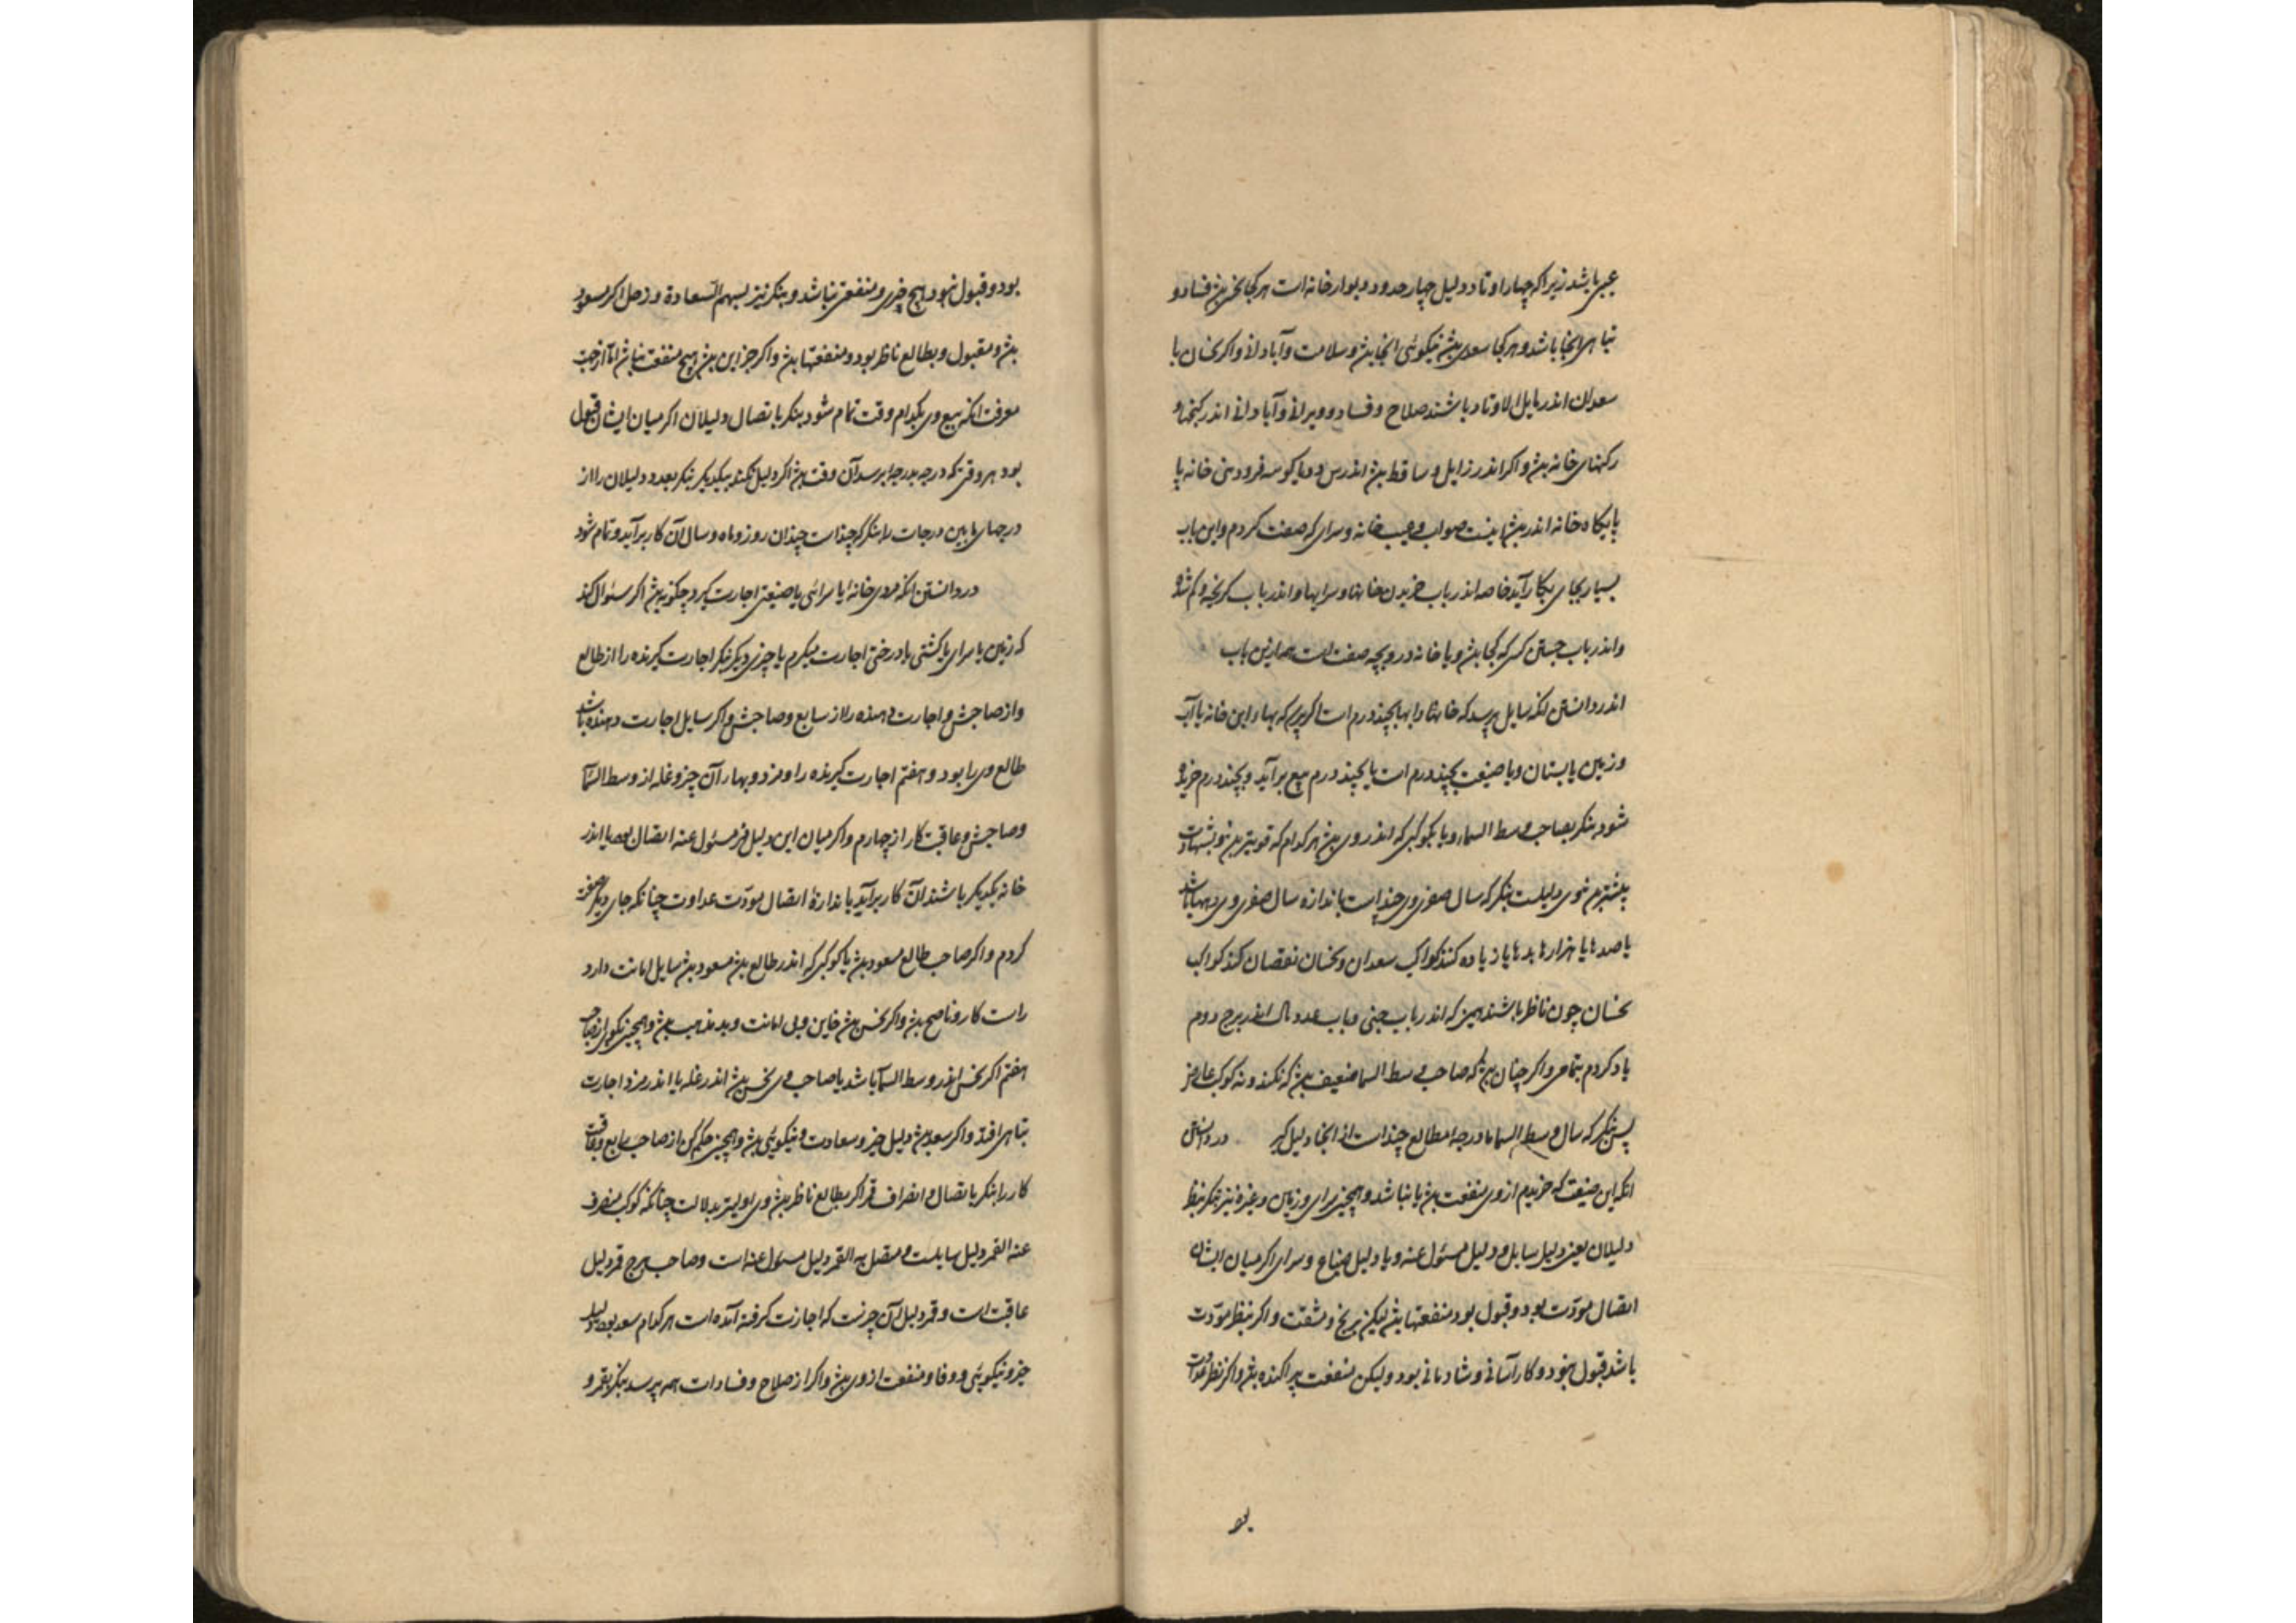 عیبی باشد زیرا که چهار اوتاد دلیل چهار حدود دیوار خانه است هر کجا نحس بود فساد و
تباهی آنجا باشد و هر کجا سعدی بود نیکوئی آنجا بود و سلامت و آبادانی و اگر نحسان یا
سعدان اندر مایل الاوتاد باشند صلاح و فساد و ویرانی و آبادانی اندر کنجها و
رکنهای خانه بود و اگر اندر زایل و ساقط بود اندرس و دیا کوسه فرودین خانه یا
پایکاه خانه اندر بود اینست صواب و عیب خانه و سرای که صفت کردم و این باب
بسیار بجای بکار آید خاصه اندر باب خریدن خانها و سرایها و اندر باب کریخته و کم شده
و اندر باب جستن کسی که کجا بود و یا خانه دزد و بچه صفت است هم ازین باب
اندر دانستن انکه سایل پرسد که خانها را بها بچند درم است اگر پرسد که بهاء این خانه یا آب
و زمین یا بستان و یا ضیعت بچند درم است یا بچند درم بیع برآید و بچند درم خریده
شود بنکر بصاحب وسط السماء و یا بکوکبی که اندر وی بود هر کدام که قویتر بود و بشهادت
بیشتر بود وی دلیلست بنکر که سال صغری وی چند است باندازه سال صغری وی دهها باشد
یا صدها یا هزارها بدهها یا زیاده کنند کواکب سعدان و نحسان نقصان کند کواکب
نحسان چون ناظر باشند همین که اندر باب جنی و باب عدد مال اندر برج دوم
یاد کردم بتمامی و اگر چنان بود که صاحب وسط السما ضعیف بود که نکند و نه کوکب عارض
پس بنکر که سال وسط السما با درجه مطالع چند است از آنجا دلیل کیر در دانستن
انکه این ضیعت که خریدم از وی منفعت بود یا نباشد و همچنین سرای و زمین و غیره نیز بنکر بنظر
دلیلان یعنی دلیل سایل و دلیل مسئول عنه و یا دلیل ضیاع و سرای اگر میان ایشان
اتصال مودّت بود و قبول بود منفعتها بود لیکن برنج و مشقّت و اگر بنظر مودّت
باشد قبول نبود و کار آسانی و شادمانی بود و لیکن منفعت پراکنده بود و اگر نظر عداوت
بو
بود و قبول نبود هیچ چیزی و منفعتی نباشد و بنکر نیز بسهم السعادة و زحل اگر مسعود
بود و مقبول و بطالع ناظر بود و منفعتها بود و اگر جز این بود هیچ منفعت نباشد امّا از جهت
معرفت انکه بیع وی بکدام وقت تمام شود بنکر باتصال دلیلان اگر میان ایشان قبول
بود هر وقتی که درجه بدرجه برسد آن وقت بود اگر دلیل نکنند بیکدیگر بنکر بعدد دلیلان را از
درجهای مابین درجات را بنکر که چند است چندان روز و ماه و سال آن کار برآید و تمام شود
در دانستن انکه مردی خانه یا سرائی یا ضیعتی اجارت کیرد چکونه بود اگر سئوال کند
که زمین یا سرای یا کشتی یا درختی اجارت میکرم یا چیزی دیکر بنکر اجارت کیرنده را از طالع
و از صاحبش و اجارت دهنده را از سابع و صاحبش و اگر سایل اجارت دهنده باشد
طالع وی را بود و هفتم اجارت کیرنده را و مزد و بهاء آن چیز و غله از وسط السّما
و صاحبش و عاقبت کار از چهارم و اگر میان این دلیل و مسئول عنه اتصال بود یا اندر
خانه یکدیکر باشند آن کار برآید باندازه اتصال مودّت عداوت چنانکه جای دیکر صفت
کردم و اگر صاحب طالع مسعود بود یا کوکبی که اندر طالع بود مسعود بود سایل امانت دارد
راست کار و ناصح بود و اگر نحس بود خاین و بی امانت و بد مذهب بود و همچنین بکوی از صاحب
هفتم اگر نحس اندر وسط السّما باشد یا صاحب وی نحس بود اندر غله یا اندر مزد اجارت
تباهی افتد و اگر سعد بود دلیل خیر و سعادت و نیکوئی بود و همچنین حکم کن از صاحب رابع و عاقبت
کار را بنکر باتصال و انصراف قمر اگر بطالع ناظر بود وی اولیتر بدلالت چنانکه کوکب منصرف
عنه القمر دلیل سایلست و متصل به القمر دلیل مسئول عنه است و صاحب برج قمر دلیل
عاقبت است و قمر دلیل آن چیزست که اجازت کرفته آمده است هر کدام سعد بود دلیل
خیر و نیکوئی و وفا و منفعت از وی بود و اگر از صلاح و فسادات همه پرسد بنکر بقمر و